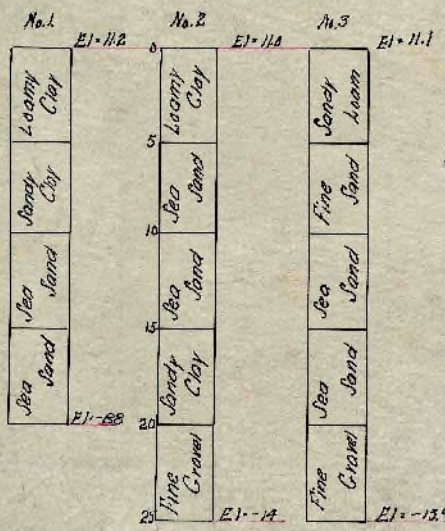 No. 1.
El = 11.2
Loamy Clay
Sandy Clay
Sea Sand
Sea Sand
El = -8.8
No. 2
0
El = 11.0
Loamy Clay
5
Sea Sand
10
Sea Sand
15
Sandy Clay
20
Fine Gravel
25
El = -14
No. 3
El = 11.1
Sandy Loam
Fine Sand
Sea Sand
Sea Sand
Fine Gravel